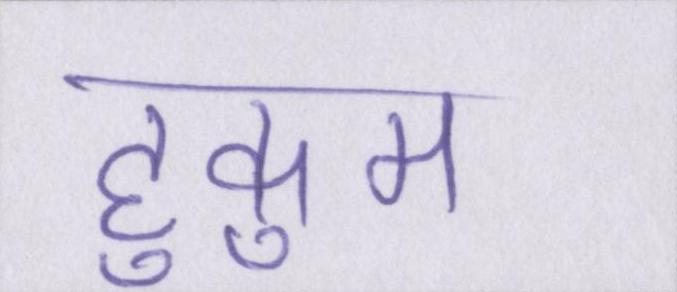 हुकुम